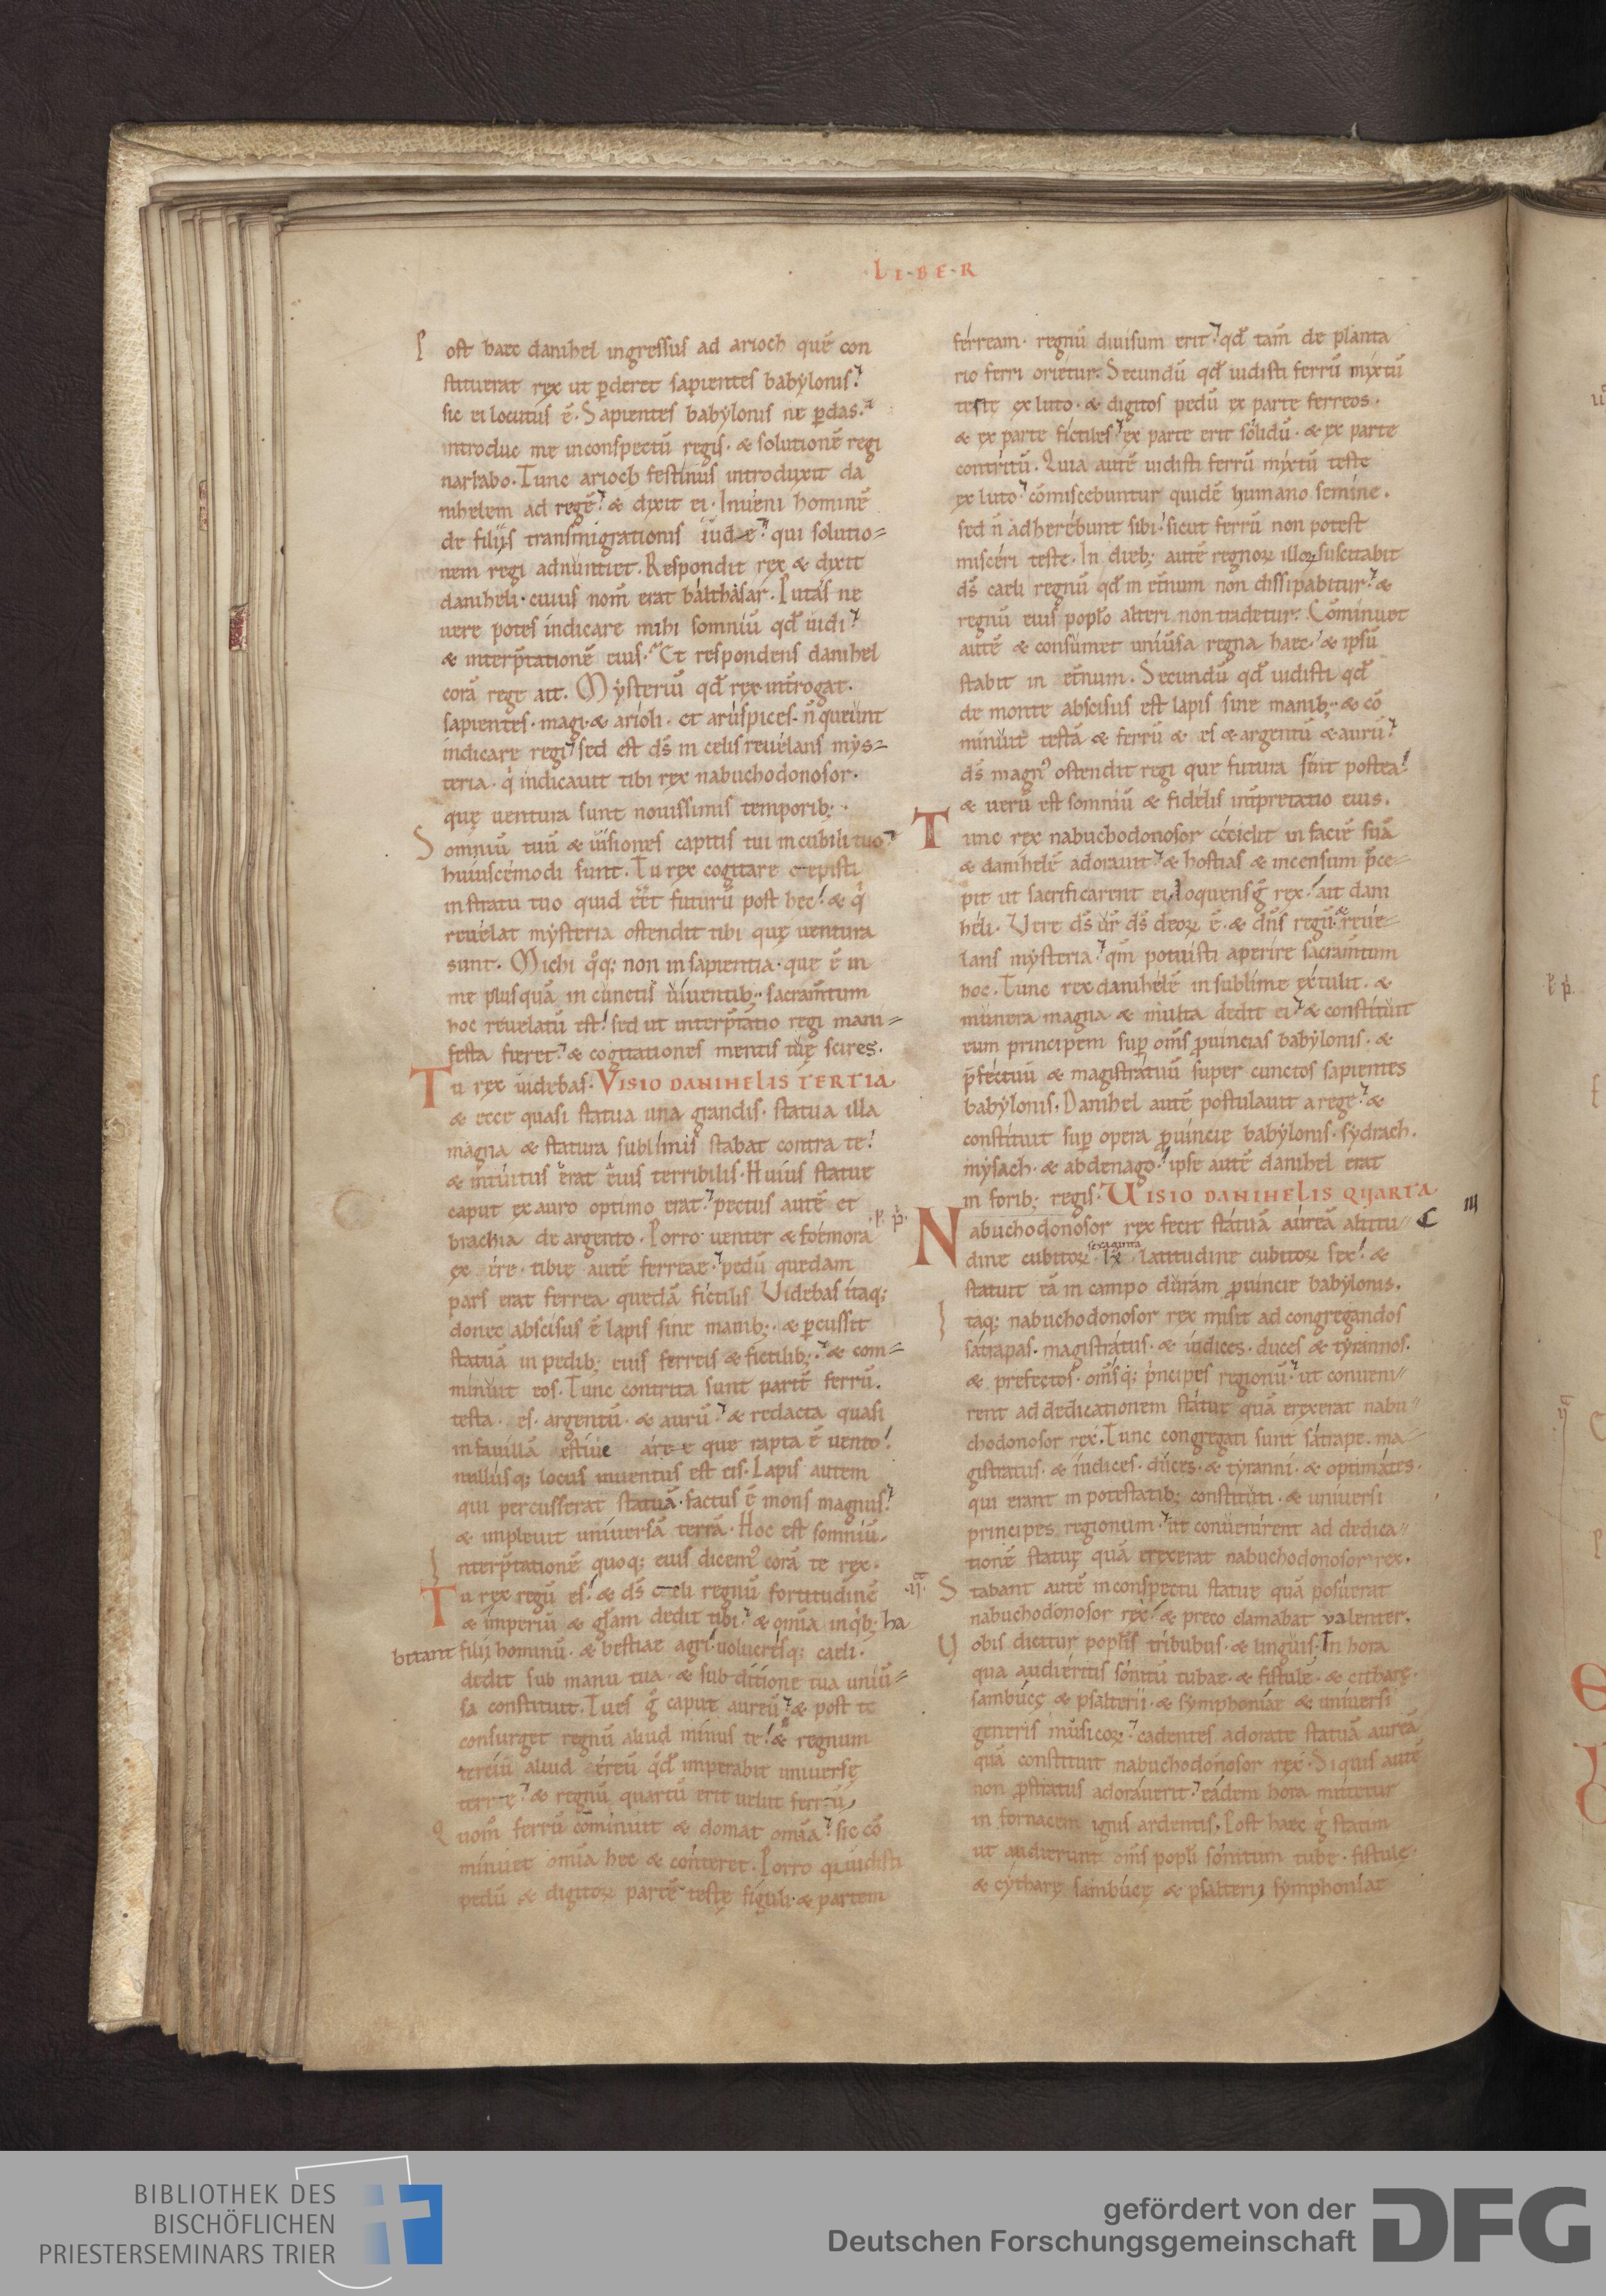 LIBER
Post haec danihel ingressus ad arioch quē con
stituerat rex ut ꝑderet sapientes babylonis.
sic ei locutus ē. Sapientes babylonis ne ꝑdas.
introduc me inconspectū regis. & solutionē regi
narrabo. Tunc arioch festinus introduxit da
nihelem ad regē. & dixit ei. Inveni hominē
de filiis transmigrationis iudę. qui solutio=
nem regi adnuntiet. Respondit rex & dixit
daniheli. cuius nom̄ erat balthasar. Putas ne
uere potes indicare mihi somniū qđ uidi.
& interp̄tationē eius. Et respondens danihel
corā rege ait. Mysteriū qđ rex introgat.
sapientes. magi. & arioli. et aruspices. n̄ queunt
indicare regi. sed est ds̄ in celis reuelans mys=
teria. q̇ indicauit tibi rex nabuchodonosor.
quę uentura sunt nouissimis temporib;.
Somniū tuū & uisiones capitis tui incubili tuo
huiuscemodi sunt. Tu rex cogitare cepisti
instratu tuo quid eēt futurū post hec. & q̇
reuelat mysteria ostendit tibi quę uentura
sunt. Michi q̊q; non insapientia. que ē in
me plusquā in cunctis uiuentib;. sacram̄tum
hoc reuelatū est. sed ut interp̄tatio regi mani=
festa fieret. & cogitationes mentis tuę scires.
Tu rex uidebas. VISIO DANIHELIS TERTIA
& ecce quasi statua una grandis. statua illa
magna & statura sublimis stabat contra te.
& intuitus erat eius terribilis. Huius statue
caput ex auro optimo erat. pectus autē et
brachia de argento. Porro uenter & femora
ex ere. tibię autē ferreae. pedū quedam
pars erat ferrea quedā fictilis Videbas itaq;
donec abscisus ē lapis sine manib;. & ꝑcussit
statuā in pedib; eius ferreis & fictilib;. & com=
minuit eos. Tunc contrita sunt parit̄ ferrū.
testa. es. argentū. & aurū. & redacta quasi
infauillā estiue aree que rapta ē uento.
nullusq; locus inuentus est eis. Lapis autem
qui percusserat statuā. factus ē mons magnus.
& impleuit uniuersā terrā. Hoc est somniū.
Interp̄tationē quoq; eius dicem᾽ corā te rex.
Tu rex regū es. & ds̄ celi regnū fortitudinē
& imperiū & gl̄am dedit tibi. & om̄ia inq̇b; ha
bitant filii hominū. & bestiae agri. uolucrisq; caeli.
dedit sub manu tua. & sub ditione tua uniū=
sa constituit. Tu es g̊ caput aureū. & post te
consurget regnū aliud minus te. & regnum
terciū aliud ereū qđ imperabit uniuersę
terrę. & regnū quartū erit uelut ferrū.
Quom̄ ferrū cōminuit & domat om̄ia. sic cō
minuet om̄ia hec & conteret. Porro q̇ uidisti
pedū & digitoꝝ partē testę figuli. & partem
ferream. regnū diuisum erit. qđ tam̄ de planta
rio ferri orietur. Secundū qđ uidisti ferrū mixtū
testę ex luto. & digitos pedū ex parte ferreos.
& ex parte fictiles. ex parte erit solidū. & ex parte
contritū. Quia autē uidisti ferrū mixtū teste
ex luto. cōmiscebuntur quidē humano semine.
sed n̄ adherebunt sibi. sicut ferrū non potest
misceri teste. In dieb; autē regnoꝝ illoꝝ suscitabit
ds̄ caeli regnū qđ in et̄num non dissipabitur. &
regnū eius popl̄o alteri non tradetur. Cōminuet
autē & consumet uniūsa regna haec. & ipsū
stabit in et̄num. Secundū qđ uidisti qđ
de monte abscisus est lapis sine manib;. & cō
minuit testā & ferrū & es & argentū & aurū.
ds̄ magn᾽ ostendit regi que futura sint postea.
& uerū est somniū & fidelis int̄pretatio eius.
Tunc rex nabuchodonosor cecidit in faciē suā
& danihelē adorauit. & hostias & incensum p̄ce=
pit ut sacrificarent ei. loquens g̊ rex. ait dani
heli. Vere ds̄ ūr ds̄ deoꝝ ē. & dn̄s regū. & reue=
lans mysteria. qm̄ potuisti aperire sacram̄tum
hoc. Tunc rex danihelē insublime extulit. &
munera magna & multa dedit ei. & constituit
eum principem suꝑ om̄s ꝓuincias babylonis. &
p̄fectū & magistratuū super cunctos sapientes
babylonis. Danihel autē postulauit a rege. &
constituit suꝑ opera ꝓuincię babylonis. sydrach.
mysach. & abdenago. ipse autē danihel erat
in forib; regis. UISIO DANIHELIS QUARTA
Nabuchodonosor rex fecit statuā aureā altitu=
sexaginta
dine cubitoꝝ lx latitudine cubitoꝝ sex. &
statuit eā in campo duram ꝓuincie babylonis.
Itaq; nabuchodonosor rex misit ad congregandos
satrapas. magistratus. & iudices. duces & tyrannos.
& prefectos. om̄sq; ṗncipes regionū. ut conueni=
rent ad dedicationem statuę quā erexerat nabu=
chodonosor rex. Tunc congregati sunt satrape. ma=
gistratus. & iudices. duces. & tyranni. & optimates.
qui erant in potestatib; constituti. & uniuersi
principes regionum. ut conuenirent ad dedica=
tionē statuę quā erexerat nabuchodonosor rex.
Stabant autē inconspectu statue quā posuerat
nabuchodonosor rex. & preco clamabat valenter.
Vobis dicitur popl̄is tribubus. & linguis. In hora
qua audieritis sonitū tubae. & fistulę. & citharę.
sambucę & psalterii. & symphoniae & uniuersi
generis musicoꝝ. cadentes adorate statuā aureā
quā constituit nabuchodonosor rex. Si quis autē
non ꝓstratus adorauerit. eadem hora mittetur
in fornacem ignis ardentis. Post haec g̊ statim
ut audierunt om̄s popl̄i sonitum tube. fistulę.
& cytharę sambucę & psalterii symphoniae
BIBLIOTHEK DES
BISCHÖFLICHEN
PRIESTERSEMINARS TRIER
gefördert von der
Deutschen Forschungsgemeinschaft
DFG